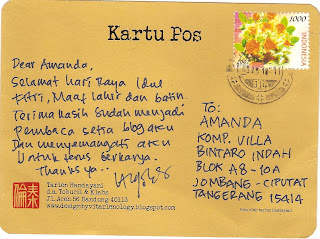 Kartu Pos
1000
INDONESIA
Dear Amanda,
Selamat hari Raya Idul
Fitri, Maaf lahir dan batin.
Terima kasih sudah menjadi
pembaca setia blog aku
dan menyemangati aku
untuk terus berkarya.
Thanks ya..
TO:
AMANDA
KOMP. VILLA
BINTARO INDAH
BLOK A8-10A
JOMBANG - CIPUTAT
TANGERANG 15414
Tarlen Handayani
d/a. Tobucil & Klabs
Jl. Aceh 56 Bandung 40113
www.designbyvitarlenology.blogspot.com